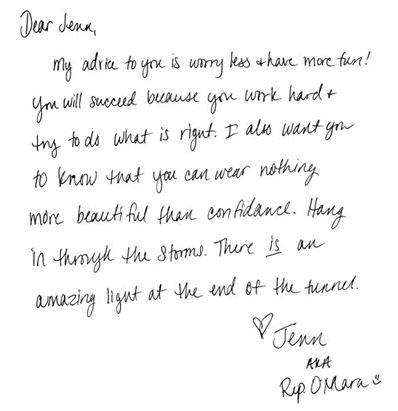 Dear Jenn,
My advice to you is worry less + have more fun!
You will succeed because you work hard +
try to do what is right. I also want you
to know that you can wear nothing
more beautiful than confidance. Hang
in through the storms. There is an
amazing light at the end of the tunnel.
♡ Jenn
AKA
Rep. O'Mara ☺